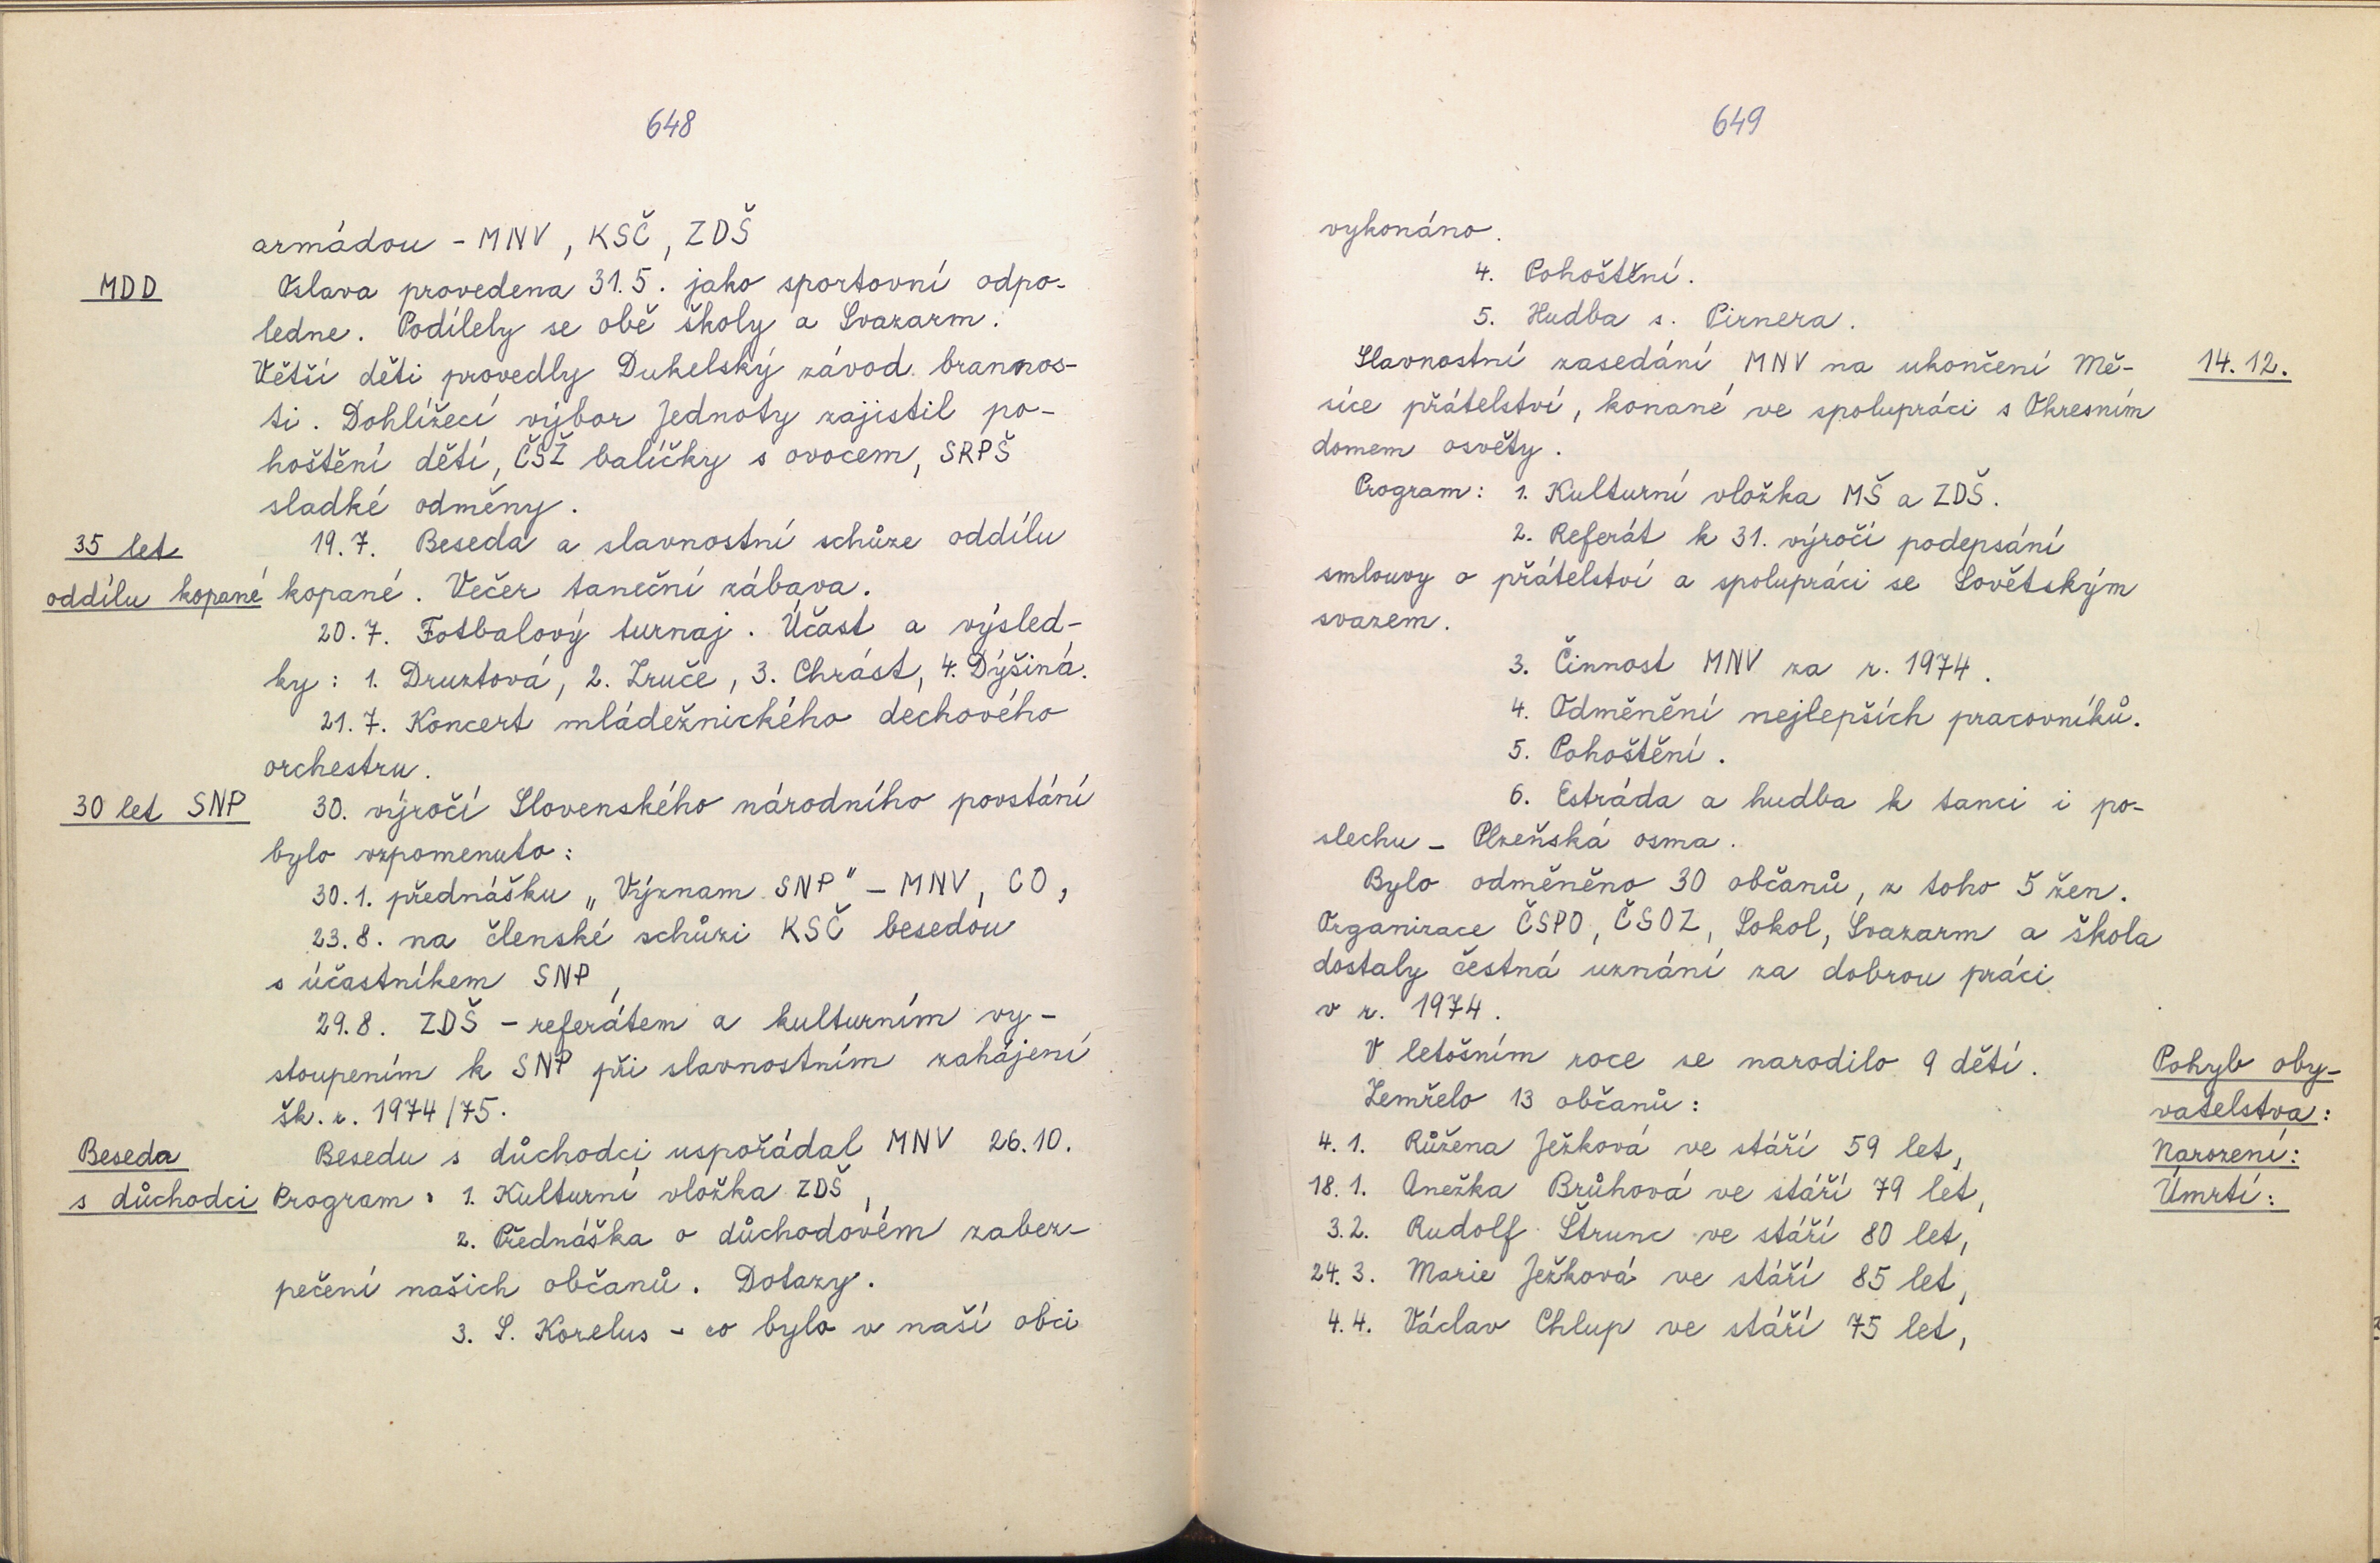 648
armádou - MNV, KSČ, ZDŠ
MDD
Oslava provedena 31.5. jako sportovní odpo-
ledne. Podílely se obě školy a Svazarm.
Větší děti provedly Dukelský závod brannos-
ti. Dohlížecí výbor Jednoty zajistil po-
hoštění dětí, ČSŽ balíčky s ovocem, SRPŠ
sladké odměny.
35 let
oddílu kopané
19.7. Beseda a slavnostní schůze oddílu
kopané. Večer taneční zábava.
20.7. Fotbalový turnaj. Účast a výsled-
ky: 1. Druztová, 2. Zruče, 3. Chrást, 4. Dýšiná.
21.7. Koncert mládežnického dechového
orchestru.
30 let SNP
30. výročí Slovenského národního povstání
bylo vzpomenuto:
30.1. přednášku „Význam SNP" - MNV, CO,
23.8. na členské schůzi KSČ besedou
s účastníkem SNP,
29.8. ZDŠ - referátem a kulturním vy-
stoupením k SNP při slavnostním zahájení
šk. r. 1974/75.
Beseda
s důchodci
Besedu s důchodci uspořádal MNV 26.10.
Program: 1. Kulturní vložka ZDŠ,
2. Přednáška o důchodovém zabez-
pečení našich občanů. Dotazy.
3. S. Korelus - co bylo v naší obci
649
vykonáno.
4. Pohoštění.
5. Hudba s. Pirnera.
14.12.
Slavnostní zasedání MNV na ukončení Mě-
síce přátelství, konané ve spolupráci s Okresním
domem osvěty.
Program: 1. Kulturní vložka MŠ a ZDŠ.
2. Referát k 31. výročí podepsání
smlouvy o přátelství a spolupráci se Sovětským
svazem.
3. Činnost MNV za r. 1974.
4. Odměnění nejlepších pracovníků.
5. Pohoštění.
6. Estráda a hudba k tanci i po-
slechu - Plzeňská osma.
Bylo odměněno 30 občanů, z toho 5 žen.
Organizace ČSPO, ČSOZ, Sokol, Svazarm a škola
dostaly čestná uznání za dobrou práci
v r. 1974.
Pohyb oby-
vatelstva:
Narození:
Úmrtí:
V letošním roce se narodilo 9 dětí.
Zemřelo 13 občanů:
4.1. Růžena Ježková ve stáří 59 let,
18.1. Anežka Brůhová ve stáří 79 let,
3.2. Rudolf Štrunc ve stáří 80 let,
24.3. Marie Ježková ve stáří 85 let,
4.4. Václav Chlup ve stáří 75 let,